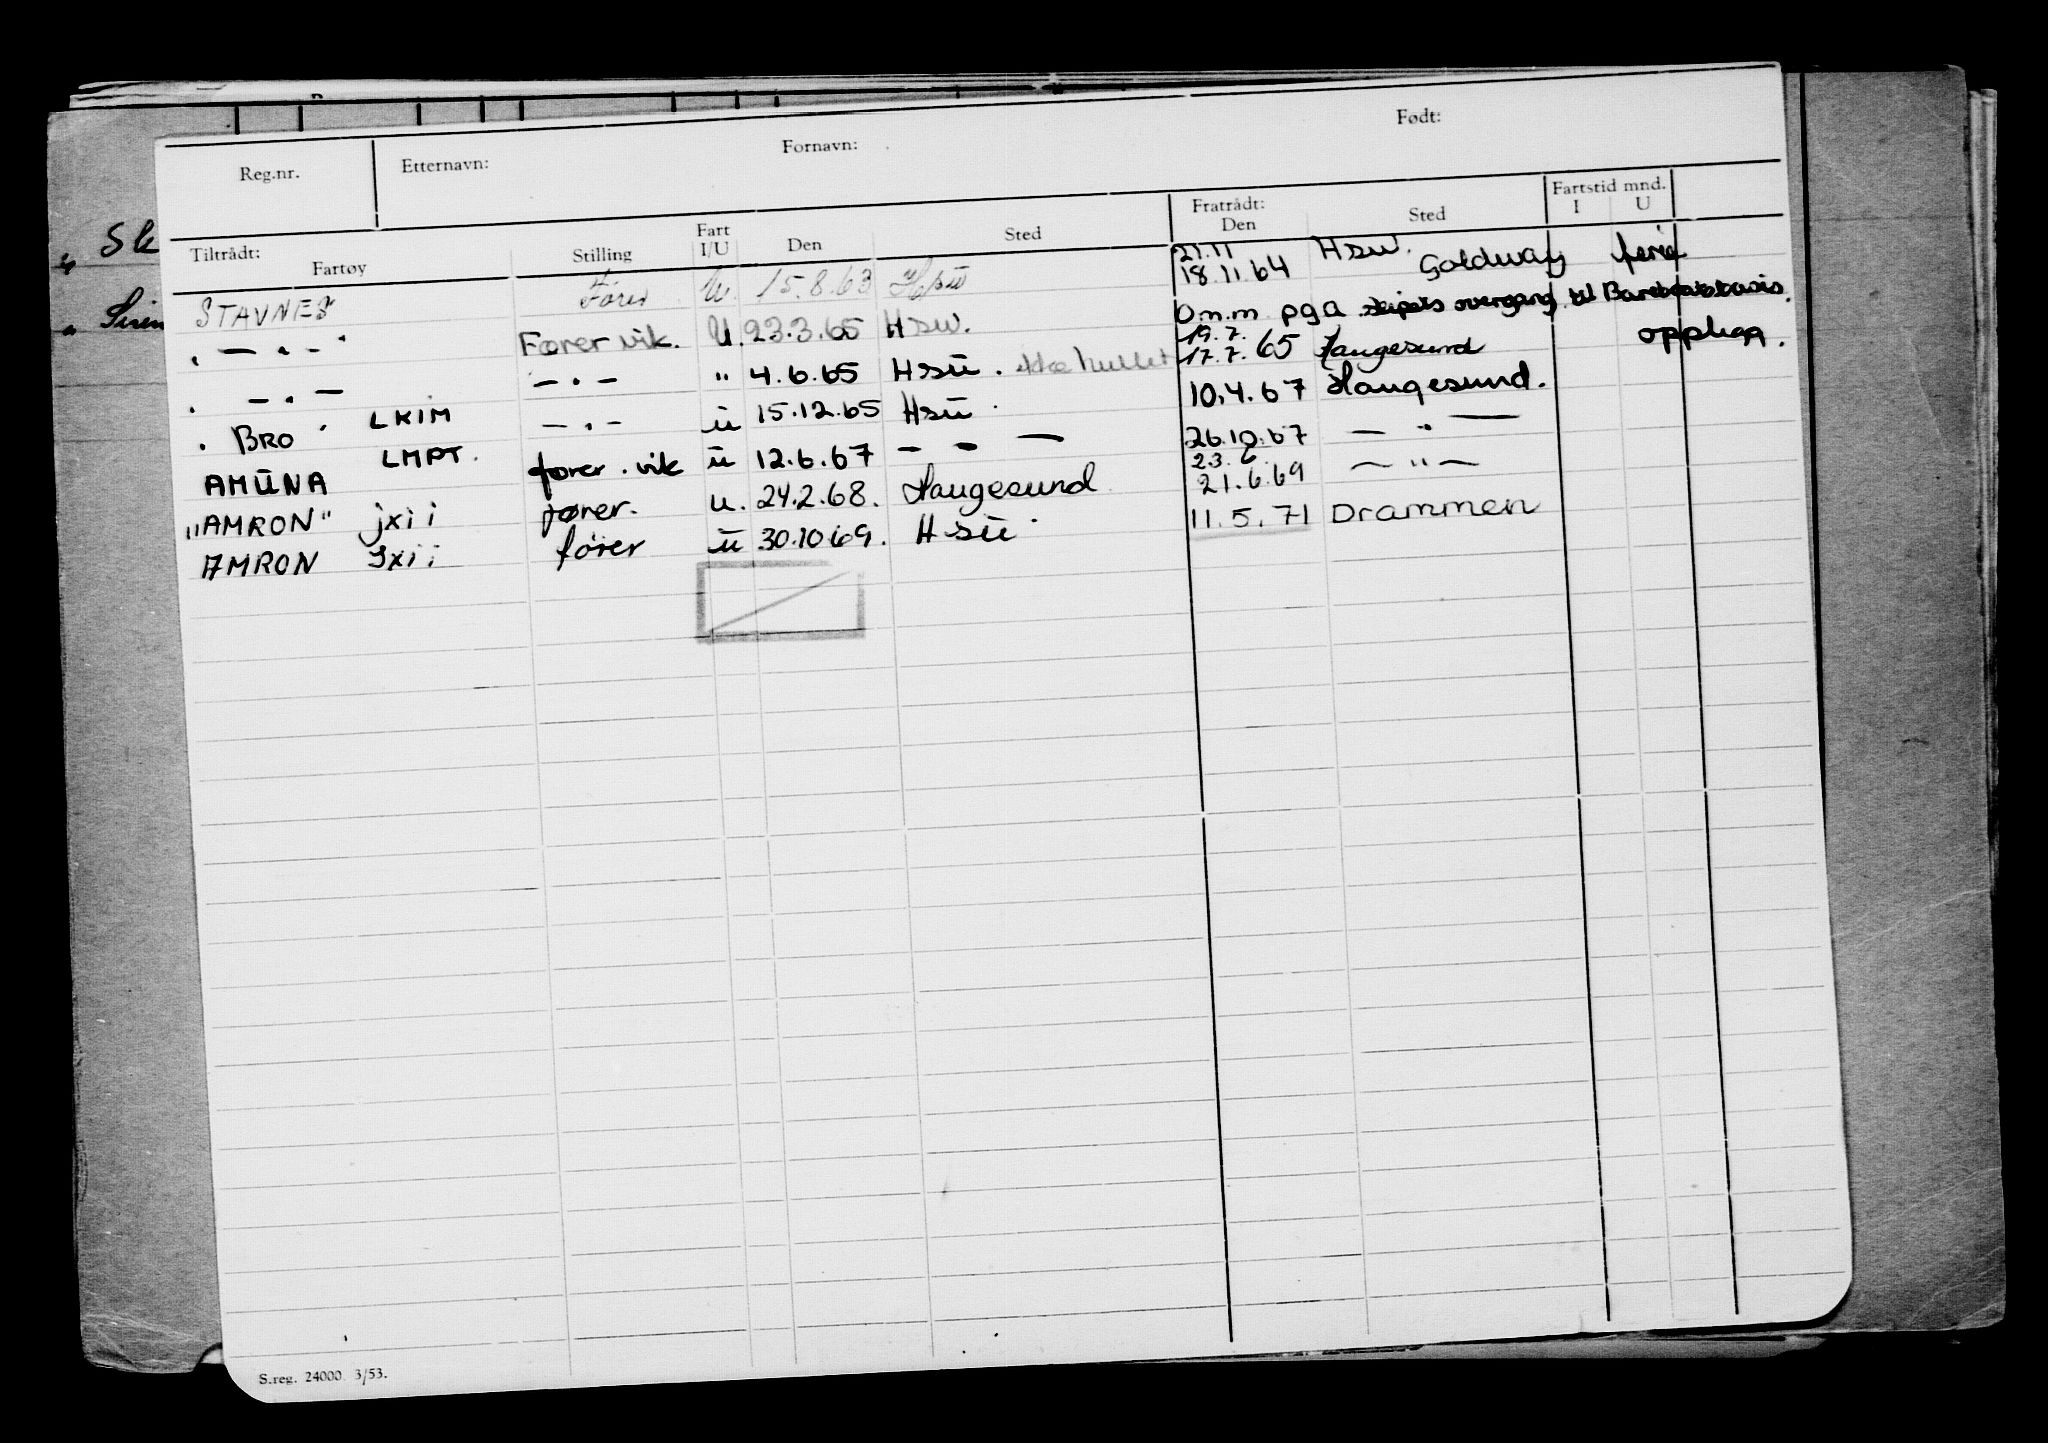 Sk
Siren
Reg.nr. Etternavn: Fornavn: Født:
Tiltrådt: Fratrådt: Fartstid mnd.
Fartøy Stilling Fart I/U Den Sted Den Sted I U
STAVNES Fører U. 15.8.63 Hsu 21.11 18.11.64 Hsu. Goldway ferie
" — " — " Fører vik. U. 23.3.65 Hsu. D.m.m pga skipets overgang til Bareboatbasis.
" — " — — " — " 4.6.65 Hsu. ikke hullet 19.7. 17.7.65 Haugesund opplag.
" BRO " LKIM — " — u 15.12.65 Hsu. 10.4.67 Haugesund.
AMUNA LMPT. fører. vik u 12.6.67 — " — 26.10.67 — " —
"AMRON" jxii fører. u. 24.2.68. Haugesund 23.6. 21.6.69 — " —
AMRON Jxii fører u 30.10 69. Hsu. 11.5.71 Drammen
S.reg. 24000. 3/53.